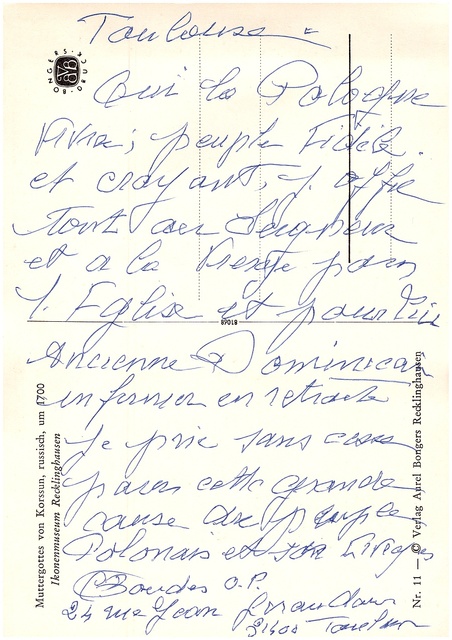 Toulouse =
BONGERS·DRUCK·
Oui la Pologne
vivra; peuple Fidèle.
et croyant, j. offre
tout au Seigneur
et a la Vierge pour
l. Eglise et pour lui
81068
Ancienne Dominicain
infirmier en retraite
je prie sans cesse
pour cette grande
cause du peuple
Polonais et son
Bourdes O.P.
24 rue Jean
31400 Toulouse
Muttergottes von Korssun, russisch, um 1700
Ikonenmuseum Recklinghausen
Nr. 11 — © Verlag Aurel Bongers Recklinghausen